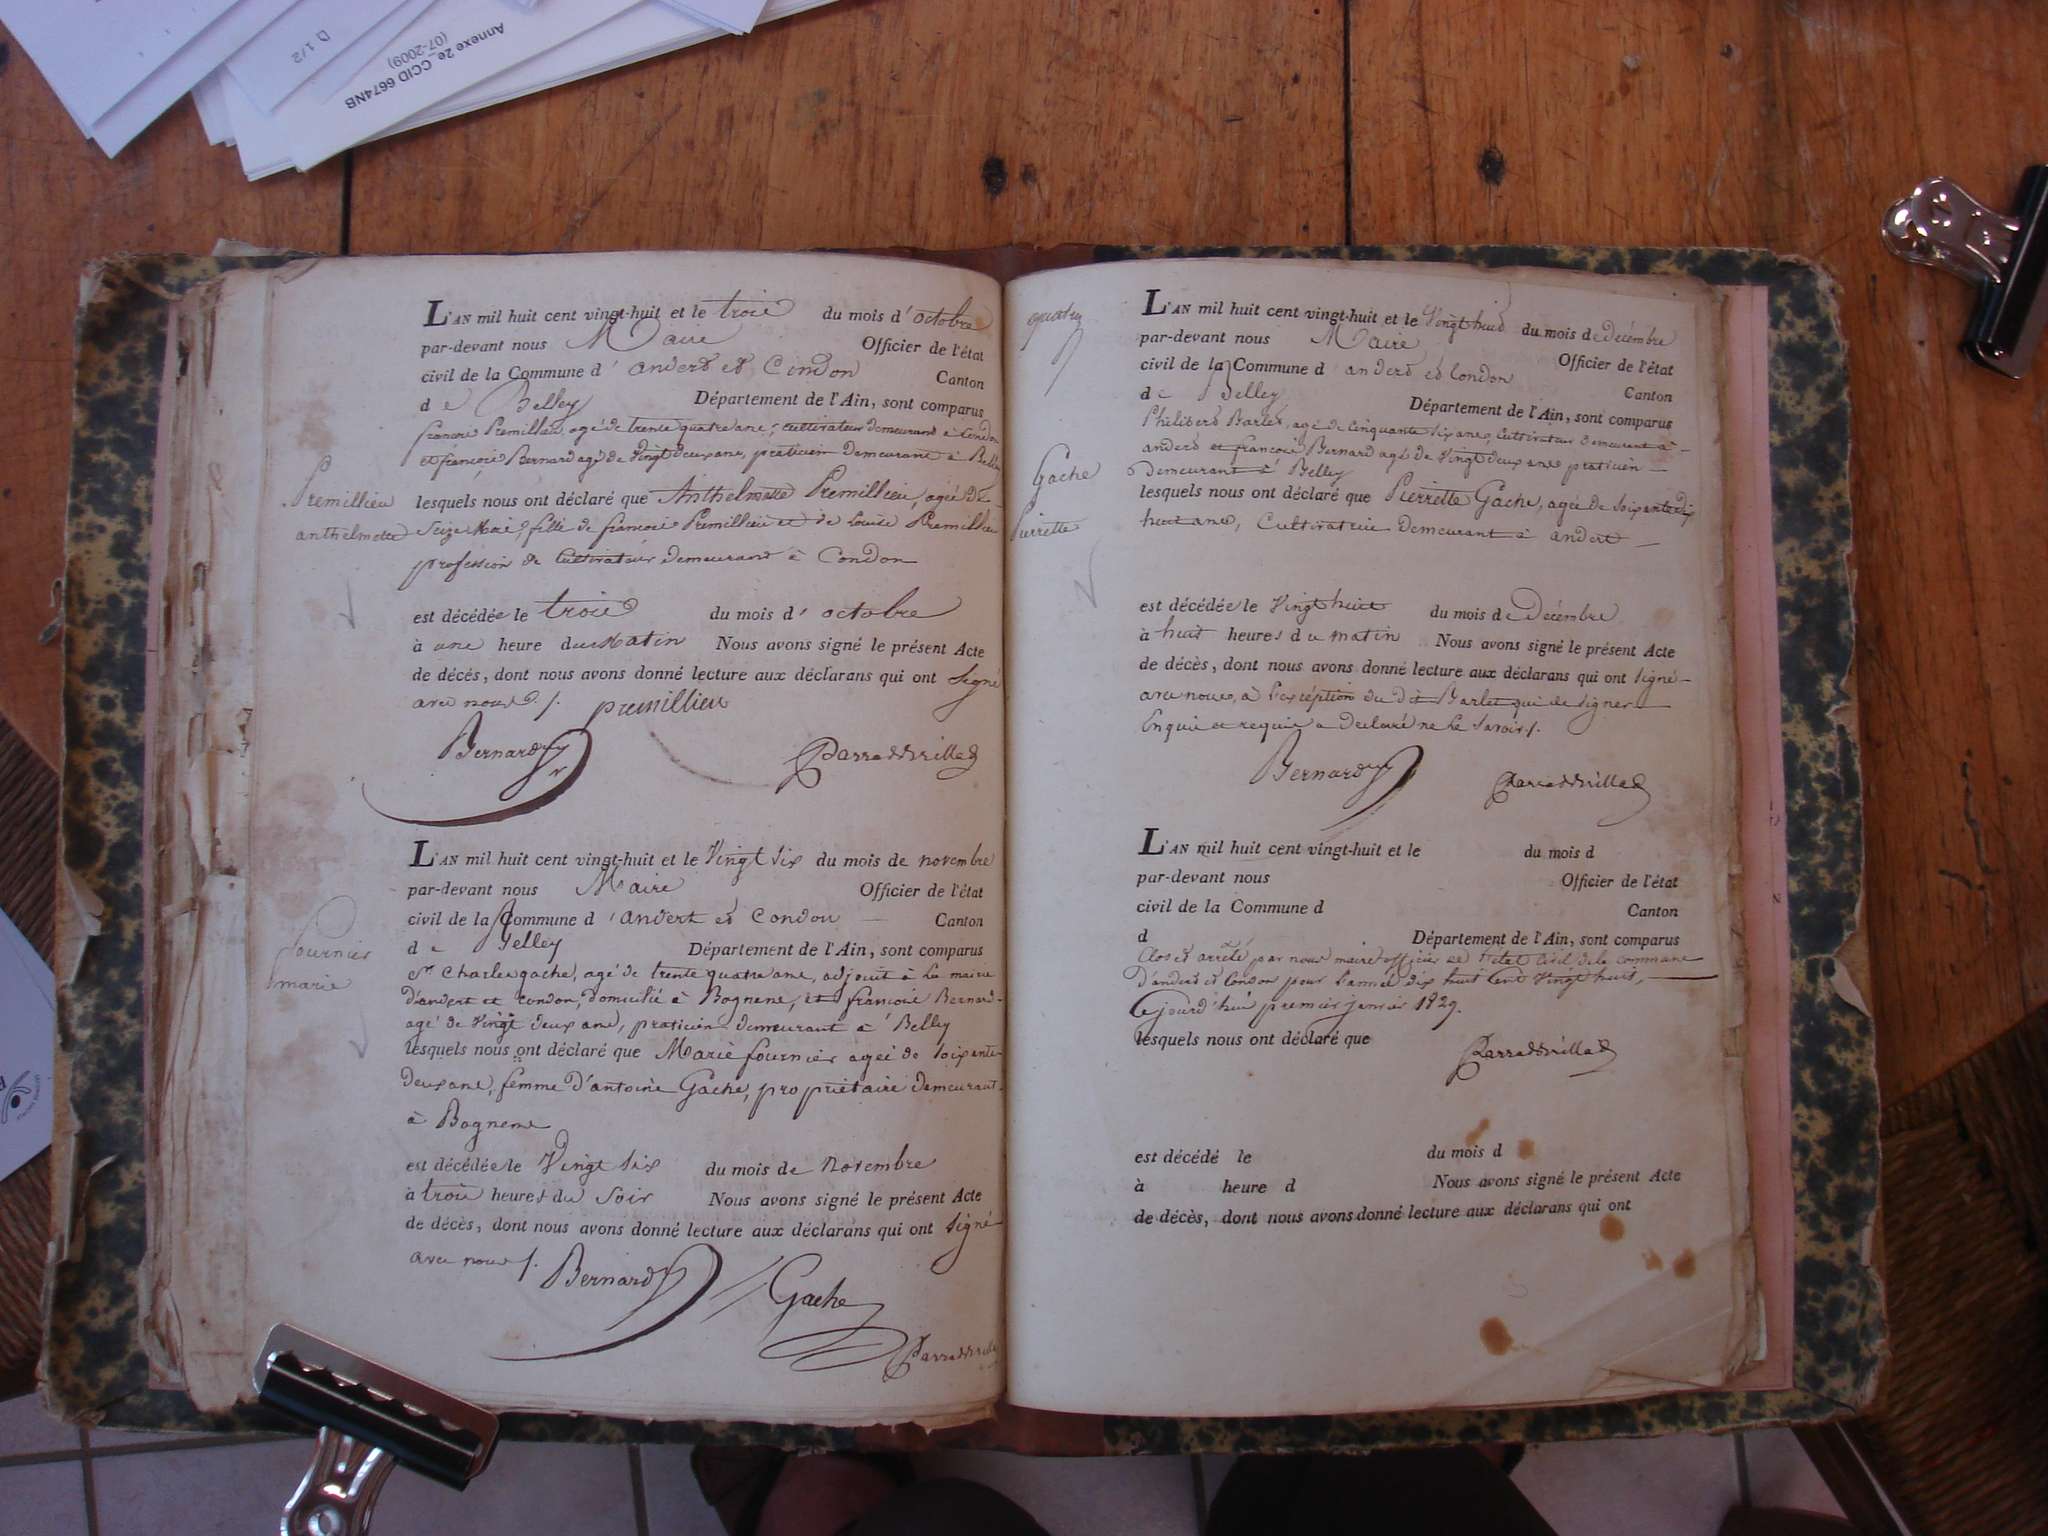 D 1/2
Annexe 2e_CCID 6674NB
(07-2009)
L'AN mil huit cent vingt-huit et le trois du mois d'octobre
par-devant nous Maire Officier de l'état
civil de la Commune d'andert et Condon Canton
de Belley Département de l'Ain, sont comparus
françois Premillieu, agé de trente quatre ans, cultivateur demeurant à Condon
et françois Bernard agé de Vingt deux ans, praticien Demeurant à Belley
Premillieu
anthelmette
lesquels nous ont déclaré que Anthelmette Premillieu, agée De
Seize Mois, fille de françois Premillieu et de Louise Premillieu
profession de Cultivateur Demeurant à Condon
est décédée le trois du mois d'octobre
à une heure du Matin Nous avons signé le présent Acte
de décès, dont nous avons donné lecture aux déclarans qui ont signé
avec nous ./. premillieu
Bernard
Parra
L'AN mil huit cent vingt-huit et le Vingt six du mois de novembre
par-devant nous Maire Officier de l'état
civil de la Commune d'andert et Condon Canton
de Belley Département de l'Ain, sont comparus
fournier
marie
Sr Charles gache, agé de trente quatre ans, adjoint à la mairie
D'andert et Condon, domicilié à Bognens, et françois Bernard
agé de Vingt deux ans, praticien demeurant à Belley
lesquels nous ont déclaré que Marie fournier agée de soixante
deux ans, femme D'antoine Gache, propriétaire demeurant
à Bognens
est décédée le Vingt six du mois de Novembre
à trois heures du Soir Nous avons signé le présent Acte
de décès, dont nous avons donné lecture aux déclarans qui ont signé
avec nous ./. Bernard
Gache
Parra
L'AN mil huit cent vingt-huit et le Vingt huit du mois de décembre
par-devant nous Maire Officier de l'état
civil de la Commune d'andert et Condon Canton
de Belley Département de l'Ain, sont comparus
Philibert Barlet, agé de Cinquante six ans, Cultivateur Demeurant à
andert et françois Bernard agé de Vingt deux ans praticien
Demeurant à Belley
Gache
Pierrette
lesquels nous ont déclaré que Pierrette Gache, agée de soixante dix
huit ans, Cultivatrice Demeurant à andert
est décédée le Vingt huit du mois de Décembre
à huit heures du matin Nous avons signé le présent Acte
de décès, dont nous avons donné lecture aux déclarans qui ont signé
avec nous, à l'exception du Dt Barlet qui de signer
Enquis et requis a Declaré ne le savoir ./.
Bernard
Parra
L'AN mil huit cent vingt-huit et le du mois d
par-devant nous Officier de l'état
civil de la Commune d Canton
d Département de l'Ain, sont comparus
Clos et arrêté par nous maire officier de l'état Civil de la commune
D'andert et Condon pour l'année dix huit Cent Vingt huit,
Cejourd'hui premier janvier 1829.
lesquels nous ont déclaré que
Parra
est décédé le du mois d
à heure d Nous avons signé le présent Acte
de décès, dont nous avons donné lecture aux déclarans qui ont